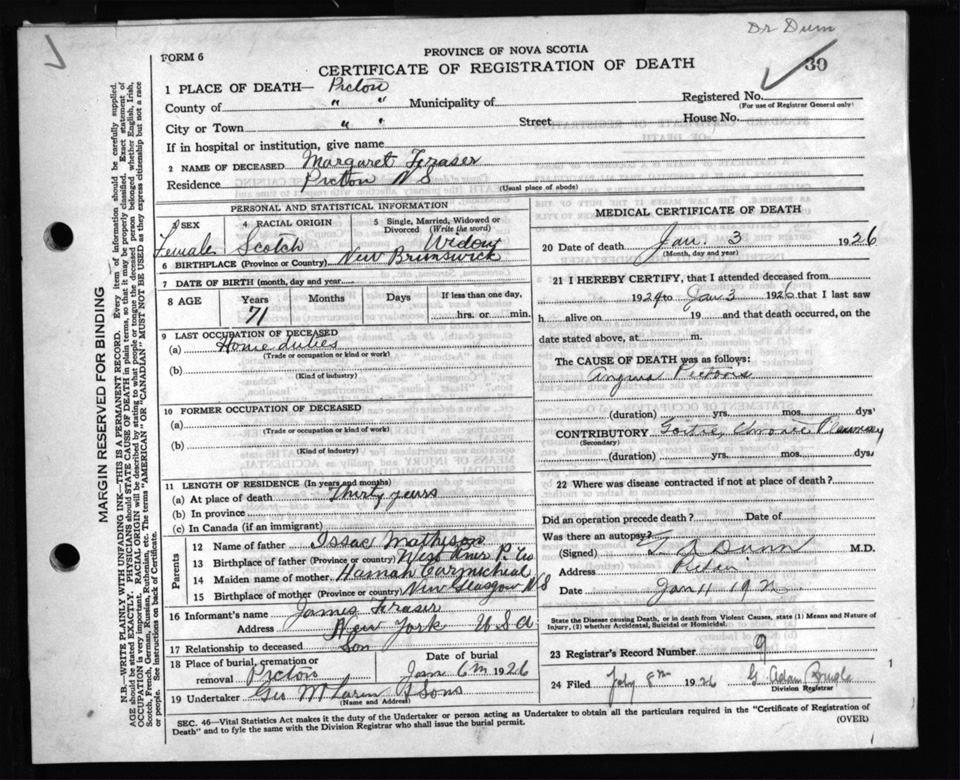 Dr Dunn
FORM 6
PROVINCE OF NOVA SCOTIA
CERTIFICATE OF REGISTRATION OF DEATH
30
1 PLACE OF DEATH— Pictou
Registered No.
(For use of Registrar General only)
County of " " Municipality of
City or Town " " Street House No.
If in hospital or institution, give name
2 NAME OF DECEASED Margaret Frazer
Residence Pictou N S
(Usual place of abode)
PERSONAL AND STATISTICAL INFORMATION
3 SEX 4 RACIAL ORIGIN 5 Single, Married, Widowed or Divorced (Write the word)
Female Scotch Widow
6 BIRTHPLACE (Province or Country) New Brunswick
7 DATE OF BIRTH (month, day and year)
8 AGE Years Months Days If less than one day,
71 hrs. or min.
9 LAST OCCUPATION OF DECEASED
(a) Home duties
(Trade or occupation or kind or work)
(b)
(Kind of industry)
10 FORMER OCCUPATION OF DECEASED
(a)
(Trade or occupation or kind or work)
(b)
(Kind of industry)
11 LENGTH OF RESIDENCE (In years and months)
(a) At place of death Thirty years
(b) In province
(c) In Canada (if an immigrant)
Parents
12 Name of father Issac Matheson
13 Birthplace of father (Province or country) West River P. Co
14 Maiden name of mother Hannah Carmicheal
15 Birthplace of mother (Province or Country) New Glasgow N S
16 Informant's name James Frazer
Address New York U S A
17 Relationship to deceased Son
18 Place of burial, cremation or removal Pictou
Date of burial Jan 6th 1926
19 Undertaker Geo McLaren & Sons
(Name and Address)
MEDICAL CERTIFICATE OF DEATH
20 Date of death Jan. 3 1926
(Month, day and year)
21 I HEREBY CERTIFY, that I attended deceased from
1924 to Jan 3 1926 that I last saw
h alive on 19 and that death occurred, on
date stated above, at m.
The CAUSE OF DEATH was as follows:
Angina Pectoris
(duration) yrs. mos. dys'
CONTRIBUTORY Chronic Pleurisy
(Secondary)
(duration) yrs. mos. dys.
22 Where was disease contracted if not at place of death?
Did an operation precede death? Date of
Was there an autopsy?
(Signed) Dunn M.D.
Address Pictou
Date Jan 11 192
State the Disease causing Death, or in death from Violent Causes, state (1) Means and Nature of Injury, (2) whether Accidental, Suicidal or Homicidal.
23 Registrar's Record Number 9
24 Filed 8th 1926 G. Adam
Division Registrar
SEC. 46—Vital Statistics Act makes it the duty of the Undertaker or person acting as Undertaker to obtain all the particulars required in the "Certificate of Registration of
Death" and to fyle the same with the Division Registrar who shall issue the burial permit.
(OVER)
MARGIN RESERVED FOR BINDING
N.B.—WRITE PLAINLY WITH UNFADING INK—THIS IS A PERMANENT RECORD. Every item of information should be carefully supplied.
AGE should be stated EXACTLY. PHYSICIANS should STATE CAUSE OF DEATH in plain terms, so that it may be properly classified. Exact statement of
OCCUPATION is very important. RACIAL ORIGIN will be described by stating to what people or tongue the deceased person belonged whether English, Irish,
Scotch, French, German, Russian, Ruthenian, etc. The terms "AMERICAN" OR "CANADIAN" MUST NOT BE USED as they express citizenship but not a race
or people. See instructions on back of Certificate.